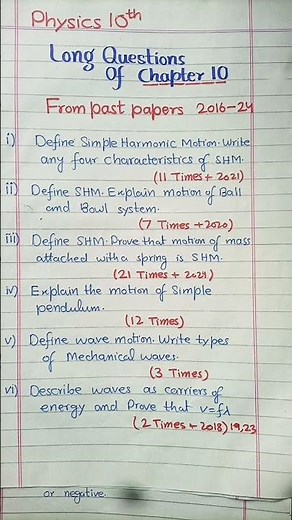 Physics 10th
Long Questions
Of Chapter 10
From past papers 2016-24
i) Define Simple Harmonic Motion. Write
any four characteristics of SHM.
(11 Times + 2021)
ii) Define SHM. Explain motion of Ball
and Bowl system.
(7 Times + 2020)
iii) Define SHM. Prove that motion of mass
attached with a spring is SHM.
(21 Times + 2021)
iv) Explain the motion of Simple
pendulum.
(12 Times)
v) Define wave motion. Write types
of Mechanical waves.
(3 Times)
vi) Describe waves as carriers of
energy and Prove that v=fλ
(2 Times + 2018) 19,23
or negative.